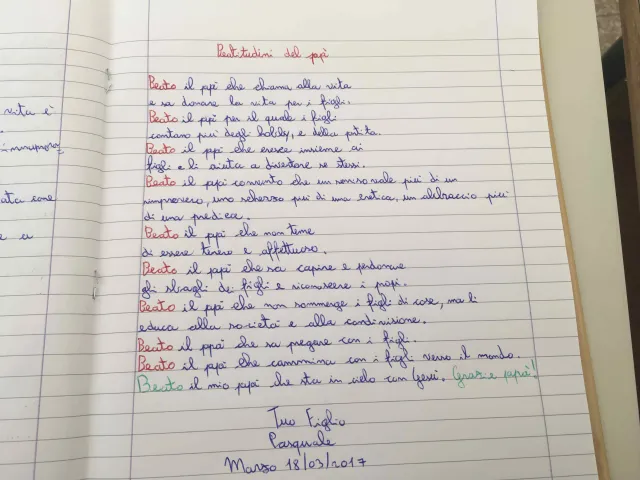 vita è
immenso
ata cone
e a
Beatitudini del papà
Beato il papà che chiama alla vita
e sa donare la vita per i figli.
Beato il papà per il quale i figli
contano più degli hobby, e della partita.
Beato il papà che cresce insieme ai
figli e li aiuta a diventare se stessi.
Beato il papà convinto che un sorriso vale più di un
rimprovero, uno scherzo più di una critica, un abbraccio più
di una predica.
Beato il papà che non teme
di essere tenero e affettuoso.
Beato il papà che sa capire e perdonare
gli sbagli dei figli e riconoscere i propi.
Beato il papà che non sommerge i figli di cose, ma li
educa alla società e alla condivisione.
Beato il ppà che sa pregare con i figli.
Beato il papà che cammina con i figli verso il mondo.
Beato il mio papà che sta in cielo con Gesù. Grazie papà!
Tuo Figlio
Pasquale
Marzo 18/03/2017